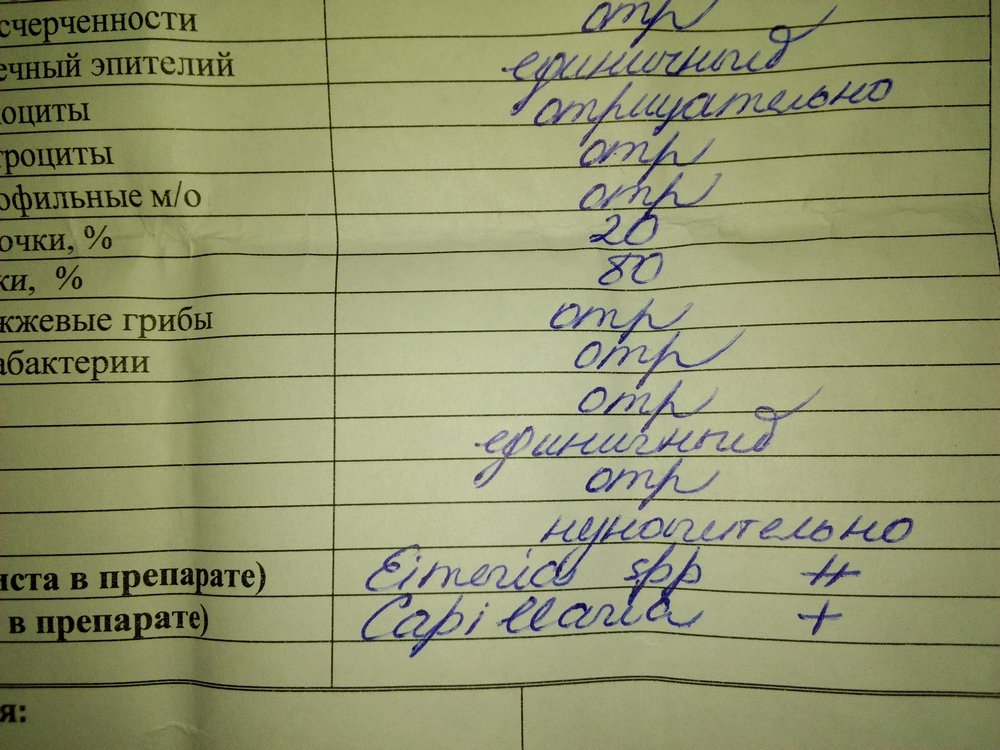 счерченности отр
ечный эпителий единичный
коциты отрицательно
троциты отр
офильные м/о отр
очки, % 20
ки, % 80
жжевые грибы отр
абактерии отр
отр
единичный
отр
незначительно
иста в препарате) Eimeria spp ++
в препарате) Capillaria +
я: